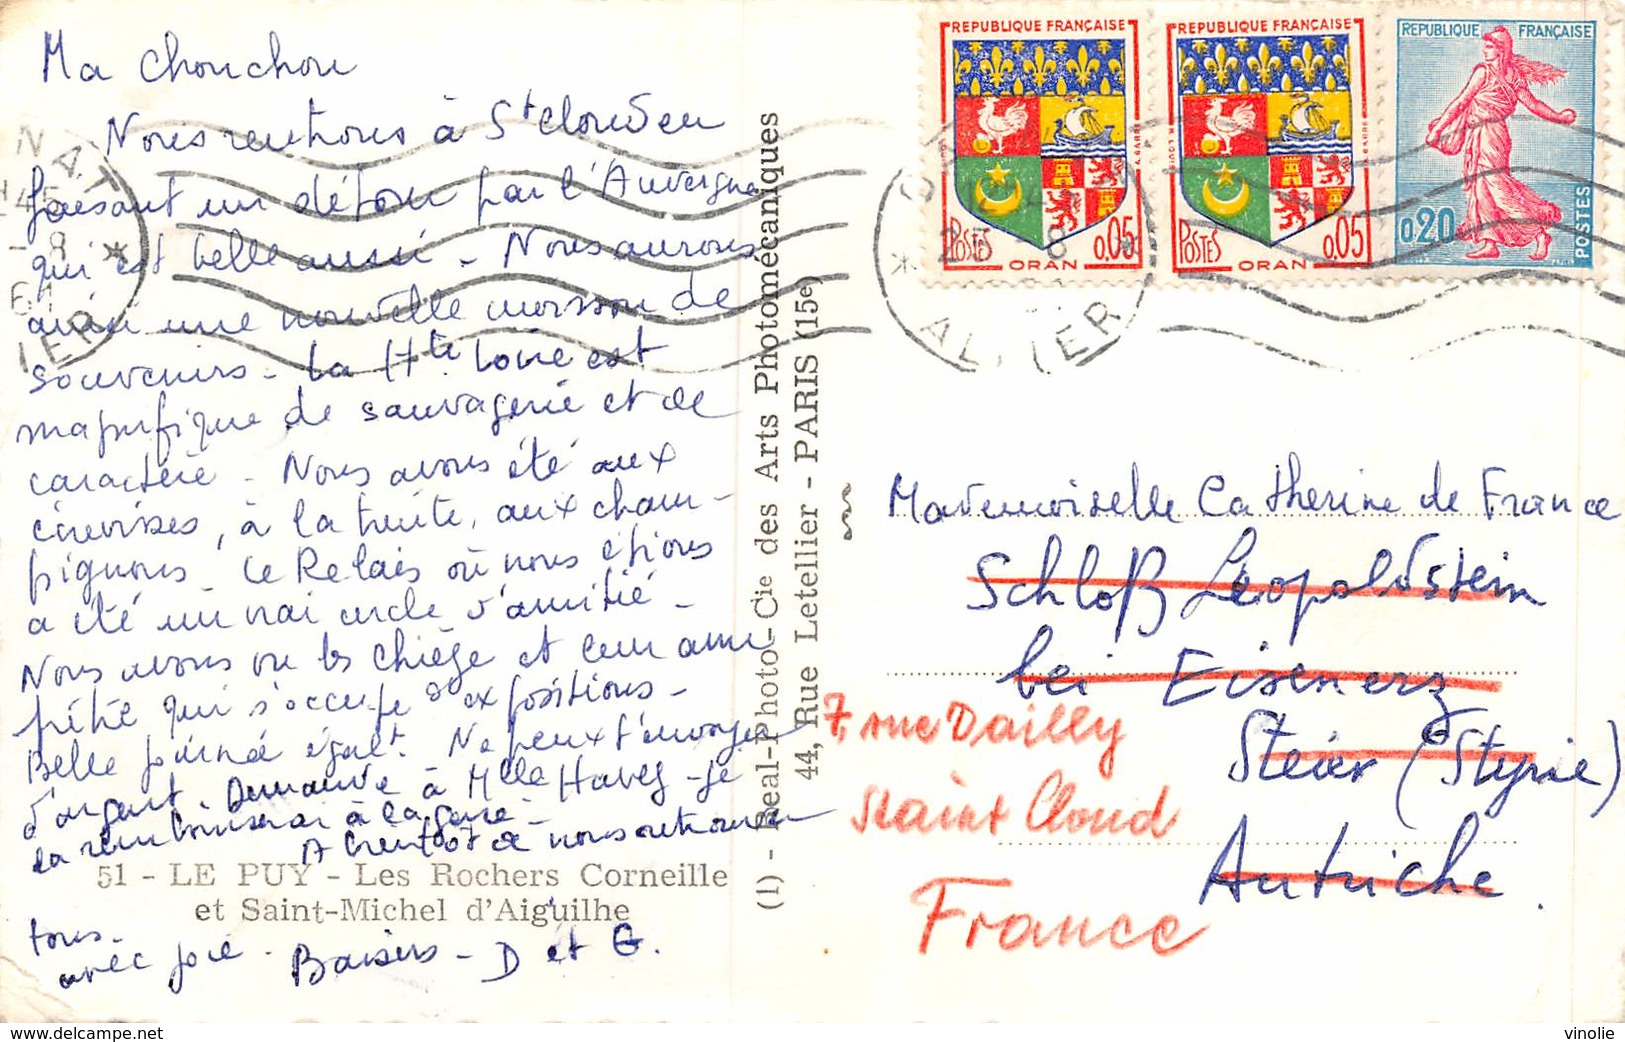 Ma Chouchou
Nous rentrons à St Cloud en
faisant un détour par l'Auvergne
qui est belle aussi - Nous aurons
une nouvelle moisson de
souvenirs - La Hte Loire est
magnifique de sauvagerie et de
caractère - Nous avons été aux
écrevisses, à la truite, aux cham-
pignons - Le Relais où nous étions
a été un vrai cercle d'amitié -
Nous avons vu les Chiège et leur ami
qui s'occupe d'expositions -
Belle journée égalt. Ne peux t'envoyer
d'argent. Demande à Mlle Haves - Je
la rembourserai à la gare -
A bientôt de nous retrouver
tous -
avec joie - Baisers - D et G.
51 - LE PUY - Les Rochers Corneille
et Saint-Michel d'Aiguilhe
(1) - Réal-Photo-Cie des Arts Photomécaniques
44, Rue Letellier - PARIS (15e)
REPUBLIQUE FRANÇAISE
POSTES 0,05
ORAN
REPUBLIQUE FRANÇAISE
POSTES 0,05
ORAN
REPUBLIQUE FRANÇAISE
0,20
POSTES
Mademoiselle Catherine de France
Schloß Leopoldstein
bei Eisenerz
Steier (Styrie)
Autriche.
7 rue Dailly
Saint Cloud
France
delcampe.net
vinolie